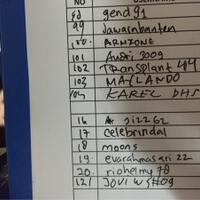 NO
98 gendg1
99 Jawainbanten
100 ARMZONE
101 Andri 3009
102 TRansplant 44
103 MAYLANDO
104 KAREL DHS
16 A 212262
17 celebrindal
18 moons
19. evarahmasari 22
20. riohelmy 78
121 JOVI